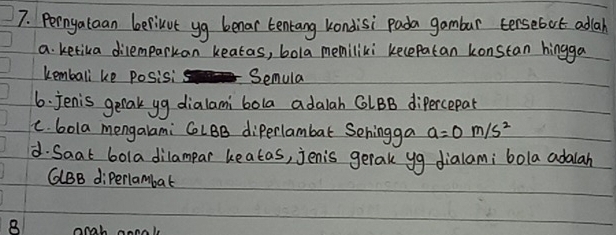 7. Pernyataan berikut yg benar tentang kondisi pada gambar tersebut adlah
a. ketika dilemparkan keatas, bola memiliki kecepatan konstan hingga
kembali ke posisi semula
b. jenis gerak yg dialami bola adalah GLBB dipercepat
c. bola mengalami GLBB diperlambat sehingga a=0 m/s²
d. Saat bola dilampar keatas, jenis gerak yg dialami bola adalah
GLBB diperlambat
8 arah gerak